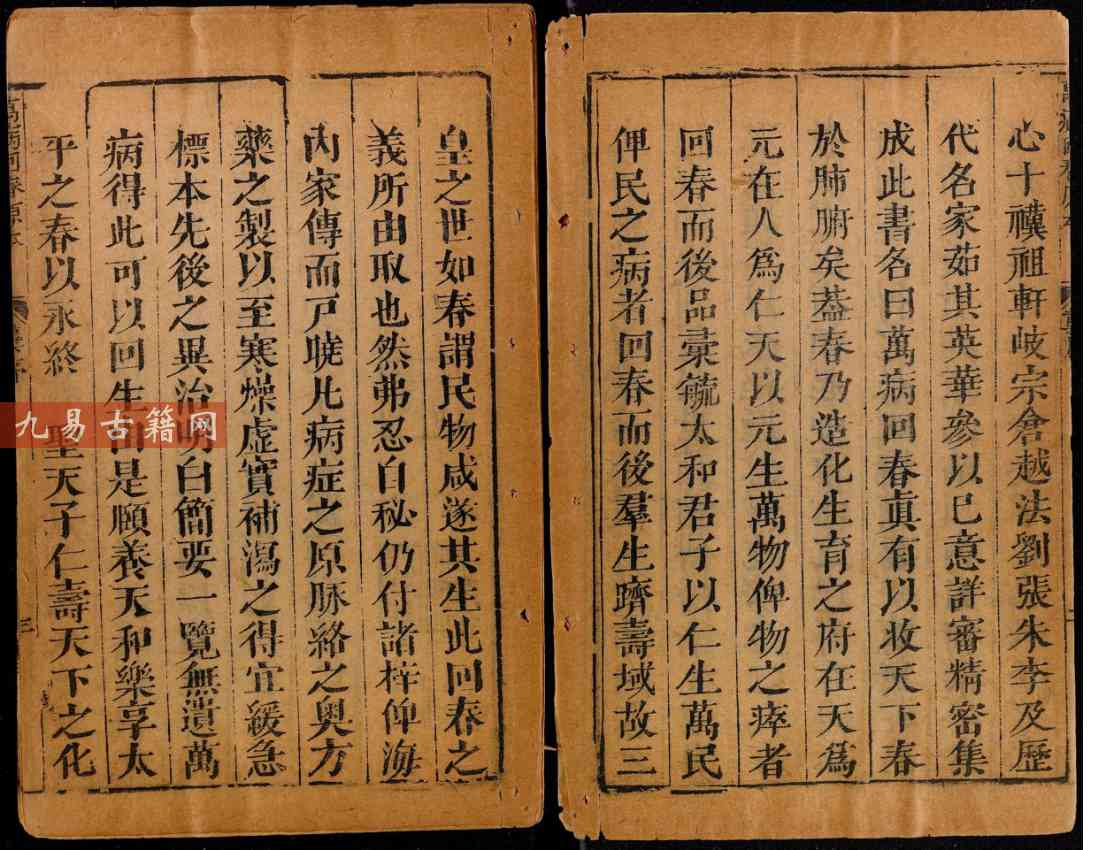 心十禩祖軒岐宗倉越法劉張朱李及歷
代名家茹其英華參以巳意詳審精密集
成此書名曰萬病回春眞有以收天下春
於肺腑矣葢春乃造化生育之府在天爲
元在人爲仁天以元生萬物俾物之瘁者
回春而後品彚毓太和君子以仁生萬民
俾民之病者回春而後羣生躋壽域故三
皇之世如春謂民物咸遂其生此回春之
義所由取也然弗忍自秘仍付諸梓俾海
內家傳而戸曉凡病症之原脉絡之奥方
藥之製以至寒燥虛實補瀉之得宜緩急
標本先後之異治明白簡要一覽無遺萬
病得此可以回生由是頤養天和樂享太
平之春以永終 聖天子仁壽天下之化
萬病回春原本
三
九易古籍网